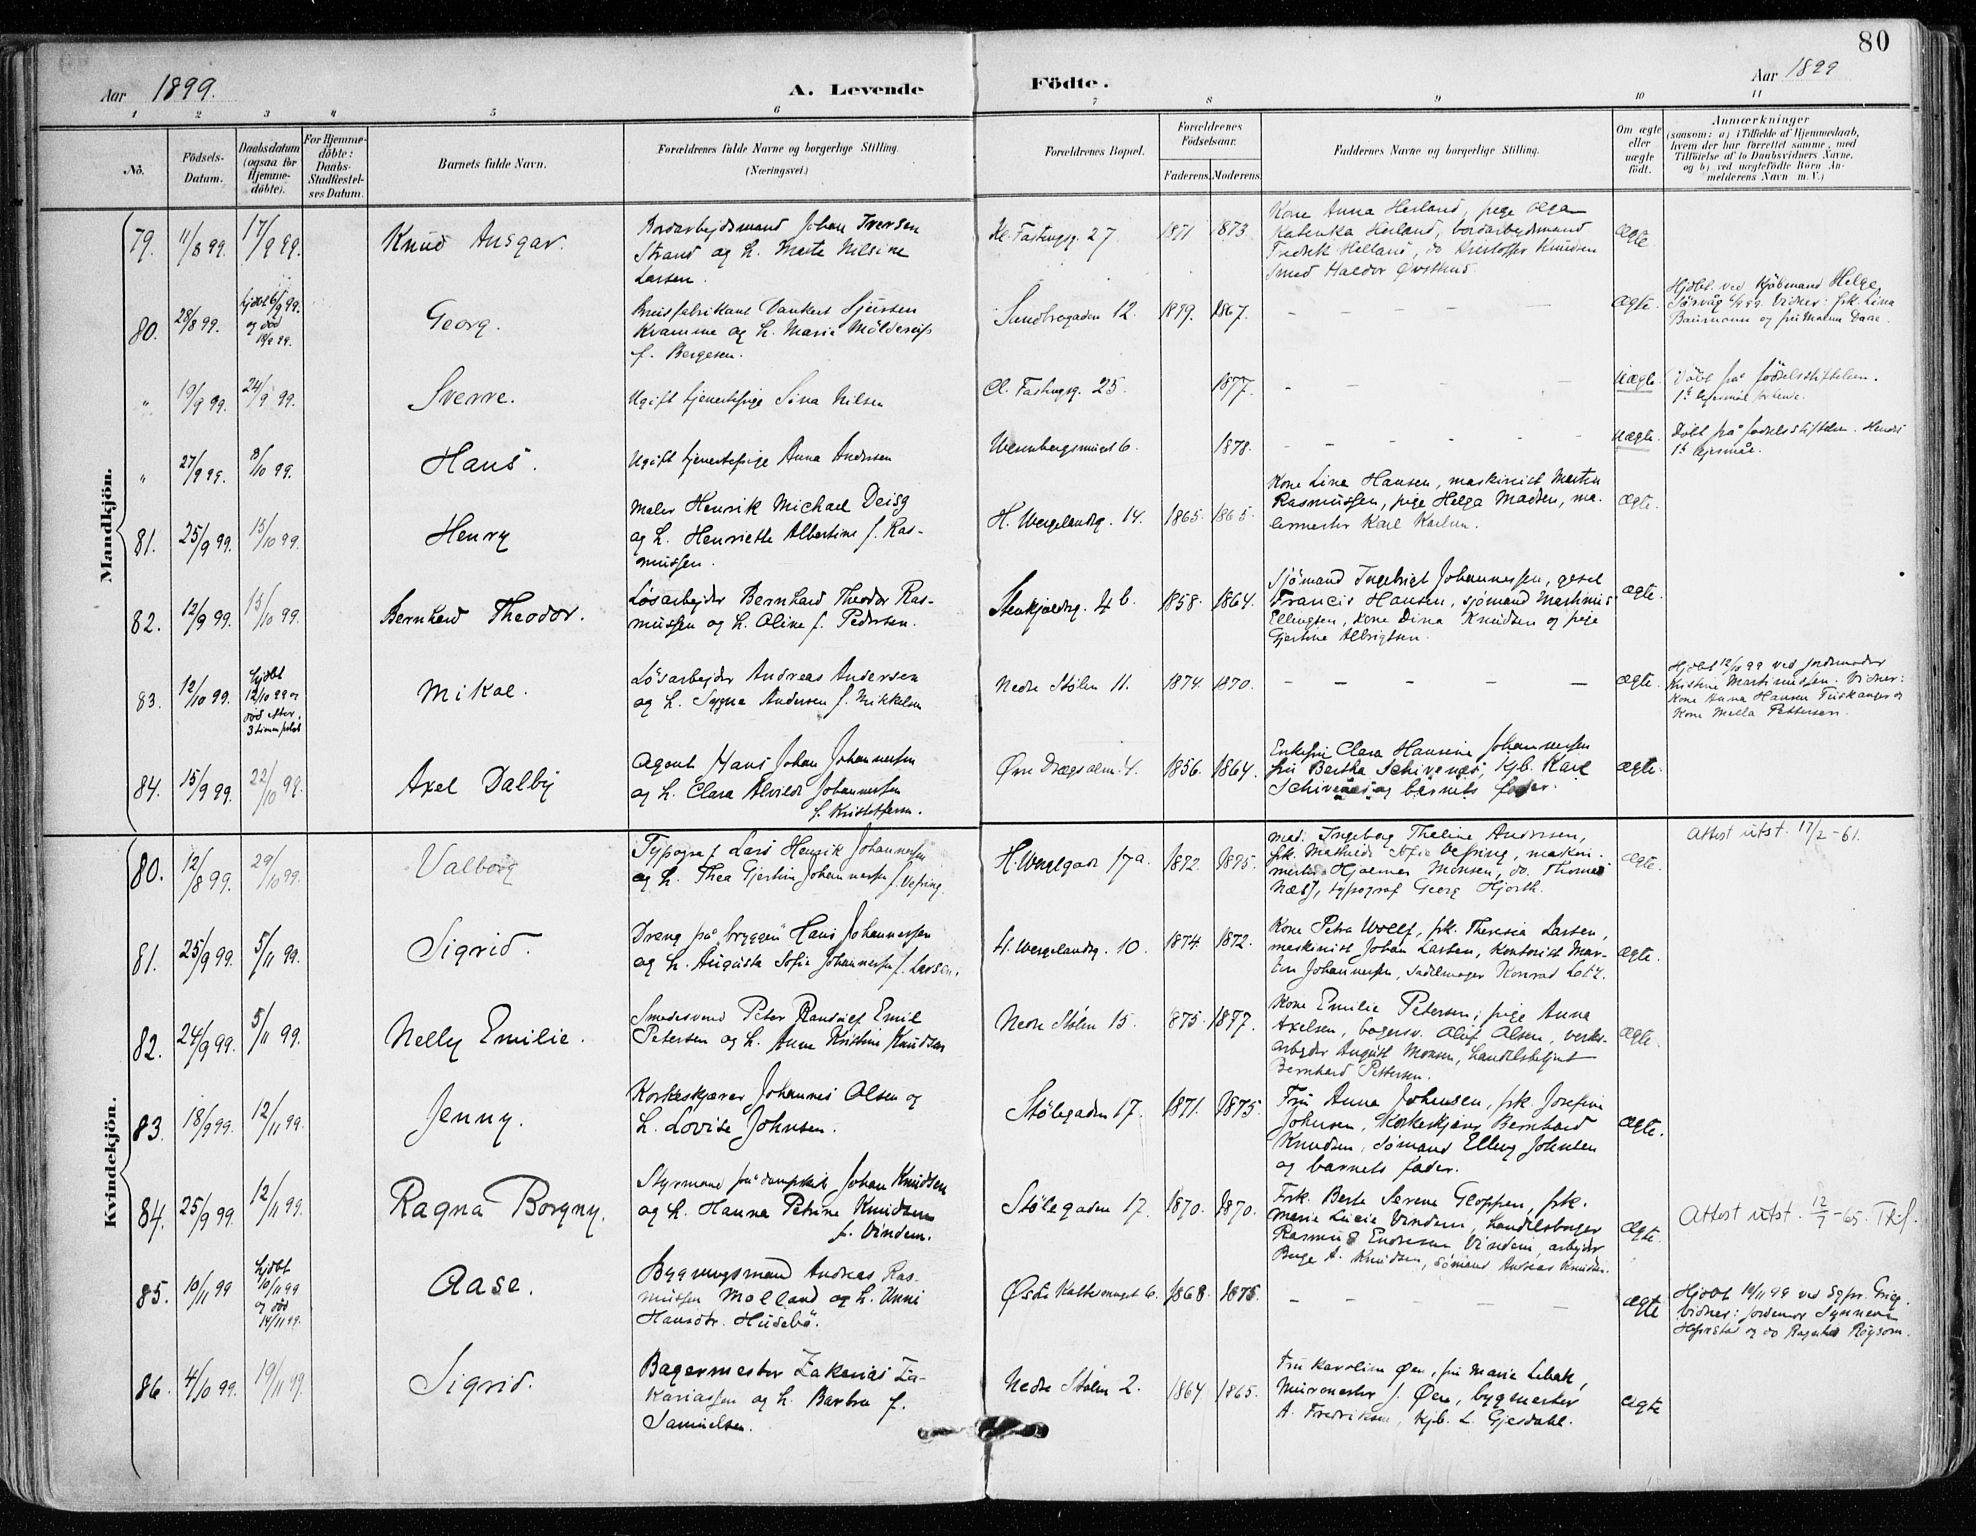 80
Aar 1899.
A. Levende Födte.
Aar 1899
1 2 3 4 5 6 7 8 9 10 11
No.
Födsels-Datum.
Daabsdatum (ogsaa for Hjemmedöbte).
For Hjemmedöbte: Daabs-Stadfæstelses Datum.
Barnets fulde Navn.
Forældrenes fulde Navne og borgerlige Stilling.
(Næringsvei.)
Forældrenes Bopæl.
Forældrenes Födselsaar.
Faderens. Moderens.
Faddernes Navne og borgerlige Stilling.
Om ægte eller uægte födt.
Anmærkninger
(saasom: a) i Tilfælde af Hjemmedaab,
hvem der har forrettet samme, med
Tilföielse af to Daabsvidners Navne,
og b) ved uægtefödte Börn Anmelderens Navn m. V.)
Mandkjön.
79. 11/8 99. 17/9 99. Knud Ansgar.
Bordarbejdsmand Johan Iversen
Strand og h. Mette Nilsine
Larsen.
Kl. Fastingsg. 27 1871 1873.
Kone Anna Herland, pige Olga
Katinka Herland, bordarbejdsmand
Fredrik Helland, do Kristoffer Knudsen
Smed Haldor Øvsthus
ægte
80. 28/8 99. hjdbt 6/9 99. og død Georg.
Kvamme og h. Maria
f. Bergesen.
Sandbrogaden 12. 1867. – – – –
ægte.
Hjdbt. ved Kjøbmand Helge
Vidner: frk. Lina
Baurmann og frk Malene Daae.
" 19/9 99. 24/9 99. Sverre.
Ugift tjenestepige Sina Nilsen
Cl. Fastingsg. 25. 1877. – – – –
Uægte.
Døbt på fødselsstiftelsen.
1ste lejermål
" 27/9 99. 8/10 99. Hans.
Ugift tjenestepige Anna Andersen
Wernbergsmuget 6. 1878. – – – –
Uægte.
Døbt på fødselsstiftelsen. Hendes
1ste lejermål.
81. 25/9 99. 15/10 99. Henry
Maler Henrik Michael Deisz
og h. Henriette Albertine f. Ras-
mussen.
H. Wergelandsg. 14. 1865. 1865.
Kone Lina Hansen, maskinist Martin
Rasmussen, pige Helga Madsen, ma-
lermester Karl Karlsen.
ægte.
82. 12/9 99. 15/10 99. Bernhard Theodor.
Løsarbejder Bernhard Theodor Ras-
mussen og h. Oline f. Pedersen.
Stenkjeldrg. 4 b. 1858. 1864.
Sjømand Ingebrigt Johannessen, gesel
Francis Hansen, sjømand Martinius
Ellingsen, kone Dina Knudsen og pige
Gjertine Albrigtsen.
ægte.
83. 12/10 99. hjdbt 12/10 99 og død efter 3 timer Mikal.
Løsarbejder Andreas Andersen
og h. Signe Andersen f. Mikkelsen
Nedre Stølen 11. 1874. 1870. – – – – –
ægte.
Hjdbt 12/10 99 ved jordemoder
Kristine Martinussen. Vidner:
Kone Anna Hansen og
Kone Mella Pettersen.
84. 15/9 99. 22/10 99. Axel Dalby
Agent Hans Johan Johannessen
og h. Clara Alvilde Johannessen
f. Kristoffersen.
Øvre Dragsalm. 4. 1856. 1864.
Enkefru Clara Hansine Johannessen
fru Bertha Schivenæs, Kjb. Karl
Schivenæs og barnets fader.
ægte.
Kvindekjön.
80. 12/8 99. 29/10 99. Valborg
Typograf Lars Henrik Johannessen
og h. Thea Gjertine Johannessen f. Vefring.
H. Wergelgade 17a. 1872. 1875.
mad. Ingeborg Theline Andersen,
frk. Mathilde Sofie Vefring, maskin-
mester Hjalmar Monsen, do. Thomas
Næss, typograf Georg Hjorth.
ægte.
Attest utst. 17/2-61.
81. 25/9 99. 5/11 99. Sigrid.
Dreng på bryggen Hans Johannessen
og h. Augusta Sofie Johannessen f. Larsen.
H. Wergelandsg. 10. 1874. 1872.
Kone Petra Wolff, frk. Theresia Larsen,
maskinist Johan Larsen, kontorist Mar-
tin Johannessen, sadelmager Konrad Lotz.
ægte.
82. 24/9 99. 5/11 99. Nelly Emilie.
Smedesvend Peter Emil
Petersen og h. Anne Kristine Knudsen
Nedre Stølen 15. 1875. 1877.
Kone Emilie Petersen, pige Anna
Axelsen, bagersv. Oluf Olsen, verks-
arbejder August Monsen, handelsbetjent
Bernhard Pettersen.
ægte.
83. 18/9 99. 12/11 99. Jenny.
Korkeskjærer Johannes Olsen og
h. Lovise Johnsen.
Stølegaden 17. 1871. 1875.
Fru Anna Johnsen, frk. Josefine
Johnsen, Korkeskjærer Bernhard
Knudsen, sømand Elling Johnsen
og barnets fader.
ægte.
84. 25/9 99. 12/11 99. Ragna Borgny.
Styrmand på dampskib Johan Knudsen
og h. Hanna Petrine Knudsen
f. Vindem.
Stølegaden 17. 1870. 1870.
Frk. Berte Serene Gloppen, frk.
Marie Lucie Vindem, handelsborger
Rasmus Endresen Vindem, arbejder
Berge A. Knudsen, sømand Andreas Knudsen.
ægte.
Attest utst. 12/7-65.
85. 10/11 99 hjdbt 10/11 99 og død 14/11 99. Aase.
Bygningsmand Andreas Ras-
mussen Molland og h. Unni
Hansdtr. Husebø.
Østre Kattesmuget 6. 1868. 1875. – – – – –
ægte
Hjdbt 10/11 99 ved Sgpr. Grieg.
Vidner: Jordemor Synneve
og do Ragnhild Røysom.
86. 4/10 99. 19/11 99. Sigrid.
Bagermester Zakarias Za-
kariassen og h. Barbra f.
Samuelsen.
Nedre Stølen 2. 1864. 1865.
Fru Karoline Øen, fru Marie Lebak,
Murmester J. Øen, bygmester
A. Fredriksen, kjb. L. Gjesdahl.
ægte